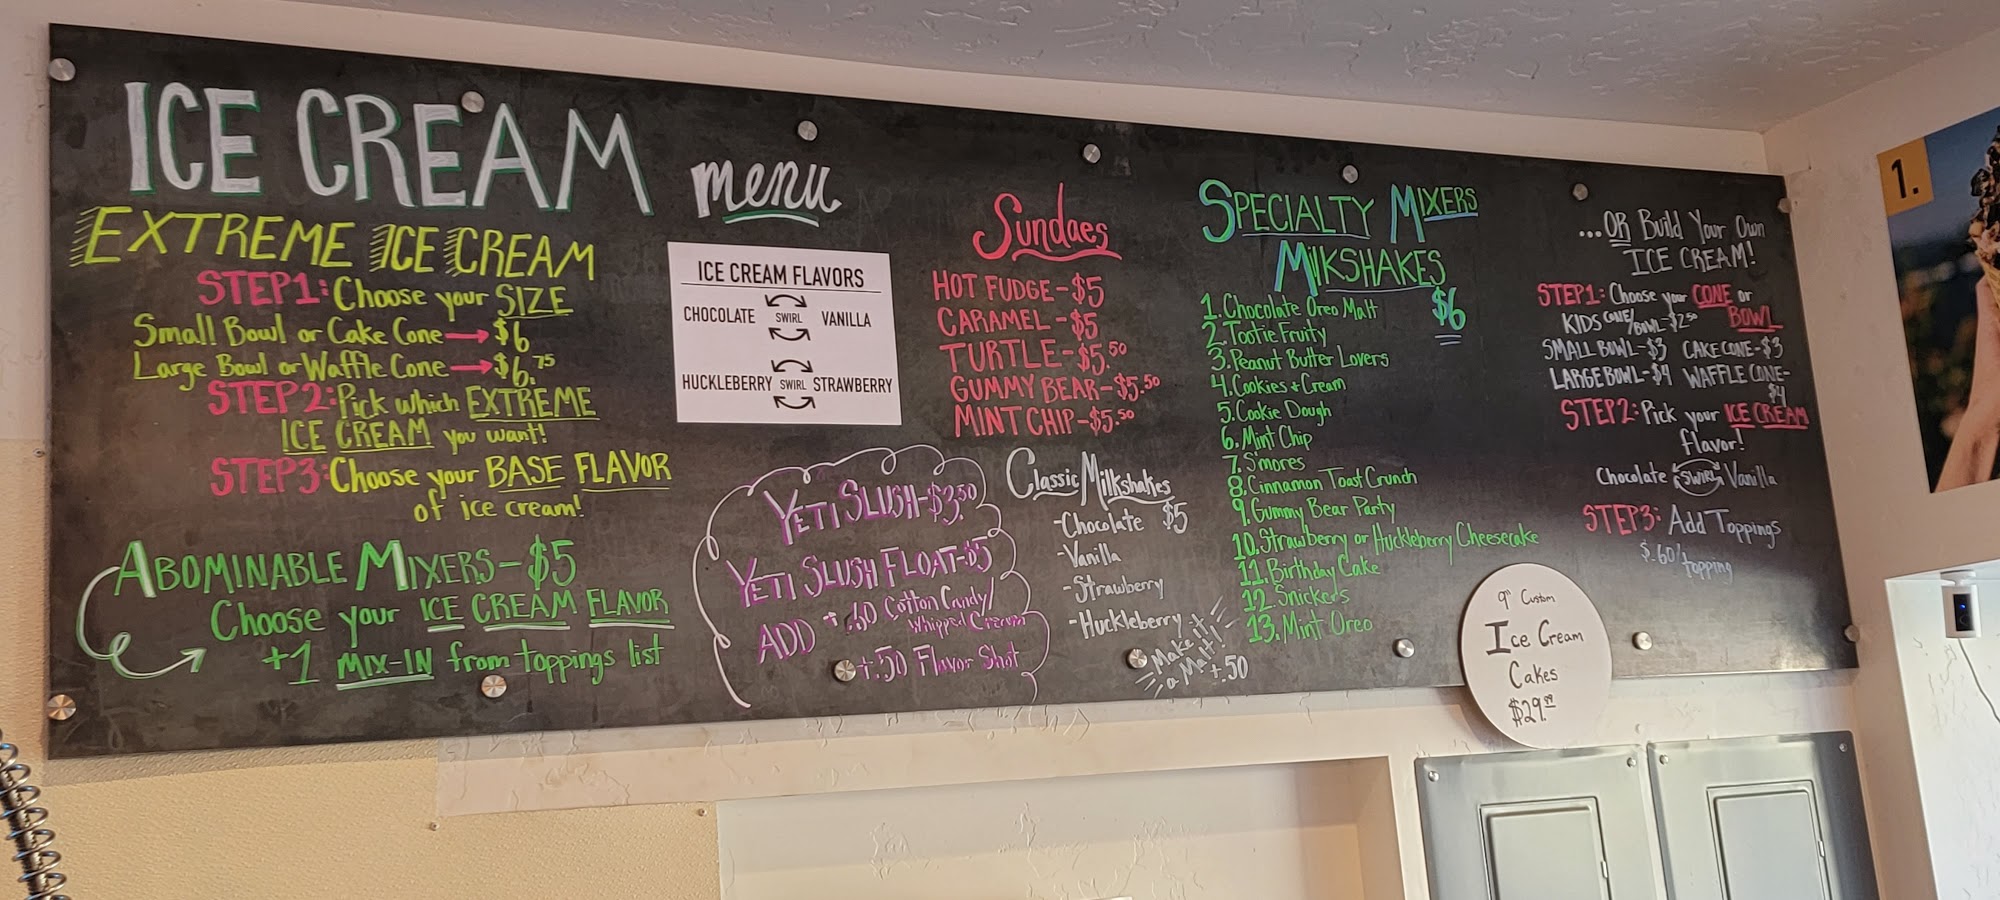 ICE CREAM menu
EXTREME ICE CREAM
STEP1: Choose your SIZE
Small Bowl or Cake Cone → $6
Large Bowl or Waffle Cone → $6.75
STEP2: Pick which EXTREME
ICE CREAM you want!
STEP3: Choose your BASE FLAVOR
of ice cream!
ABOMINABLE MIXERS - $5
Choose your ICE CREAM FLAVOR
+1 MIX-IN from toppings list
ICE CREAM FLAVORS
CHOCOLATE SWIRL VANILLA
HUCKLEBERRY SWIRL STRAWBERRY
YETI SLUSH - $3.50
YETI SLUSH FLOAT - $5
ADD +.60 Cotton Candy/
Whipped Cream
+.50 Flavor Shot
Sundaes
HOT FUDGE - $5
CARAMEL - $5
TURTLE - $5.50
GUMMY BEAR - $5.50
MINT CHIP - $5.50
Classic Milkshakes
-Chocolate $5
-Vanilla
-Strawberry
-Huckleberry
Make it
a Malt!
+.50
SPECIALTY MIXERS
MILKSHAKES
$6
1. Chocolate Oreo Malt
2. Tootie Fruity
3. Peanut Butter Lovers
4. Cookies + Cream
5. Cookie Dough
6. Mint Chip
7. S'mores
8. Cinnamon Toast Crunch
9. Gummy Bear Party
10. Strawberry or Huckleberry Cheesecake
11. Birthday Cake
12. Snickers
13. Mint Oreo
...OR Build Your Own
ICE CREAM!
STEP1: Choose your CONE or
BOWL
KIDS CONE/BOWL - $2.50
SMALL BOWL - $3 CAKE CONE - $3
LARGE BOWL - $4 WAFFLE CONE -
$4
STEP2: Pick your ICE CREAM
flavor!
Chocolate SWIRL Vanilla
STEP3: Add Toppings
$.60/topping
9" Custom
Ice Cream
Cakes
$29.99
1.